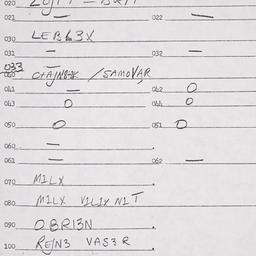 020
021 — 022 —
030 LEB63X
031 — 032 —
033 —
040 CHAJNIK / SAMOVAR
041 — 042 O
043 O 044 O
050 O 051 O
060 —
061 — 062 —
070 MILX
080 MILX VILIX NI T
090 OBRI3N
100 REJN3 VAS3R